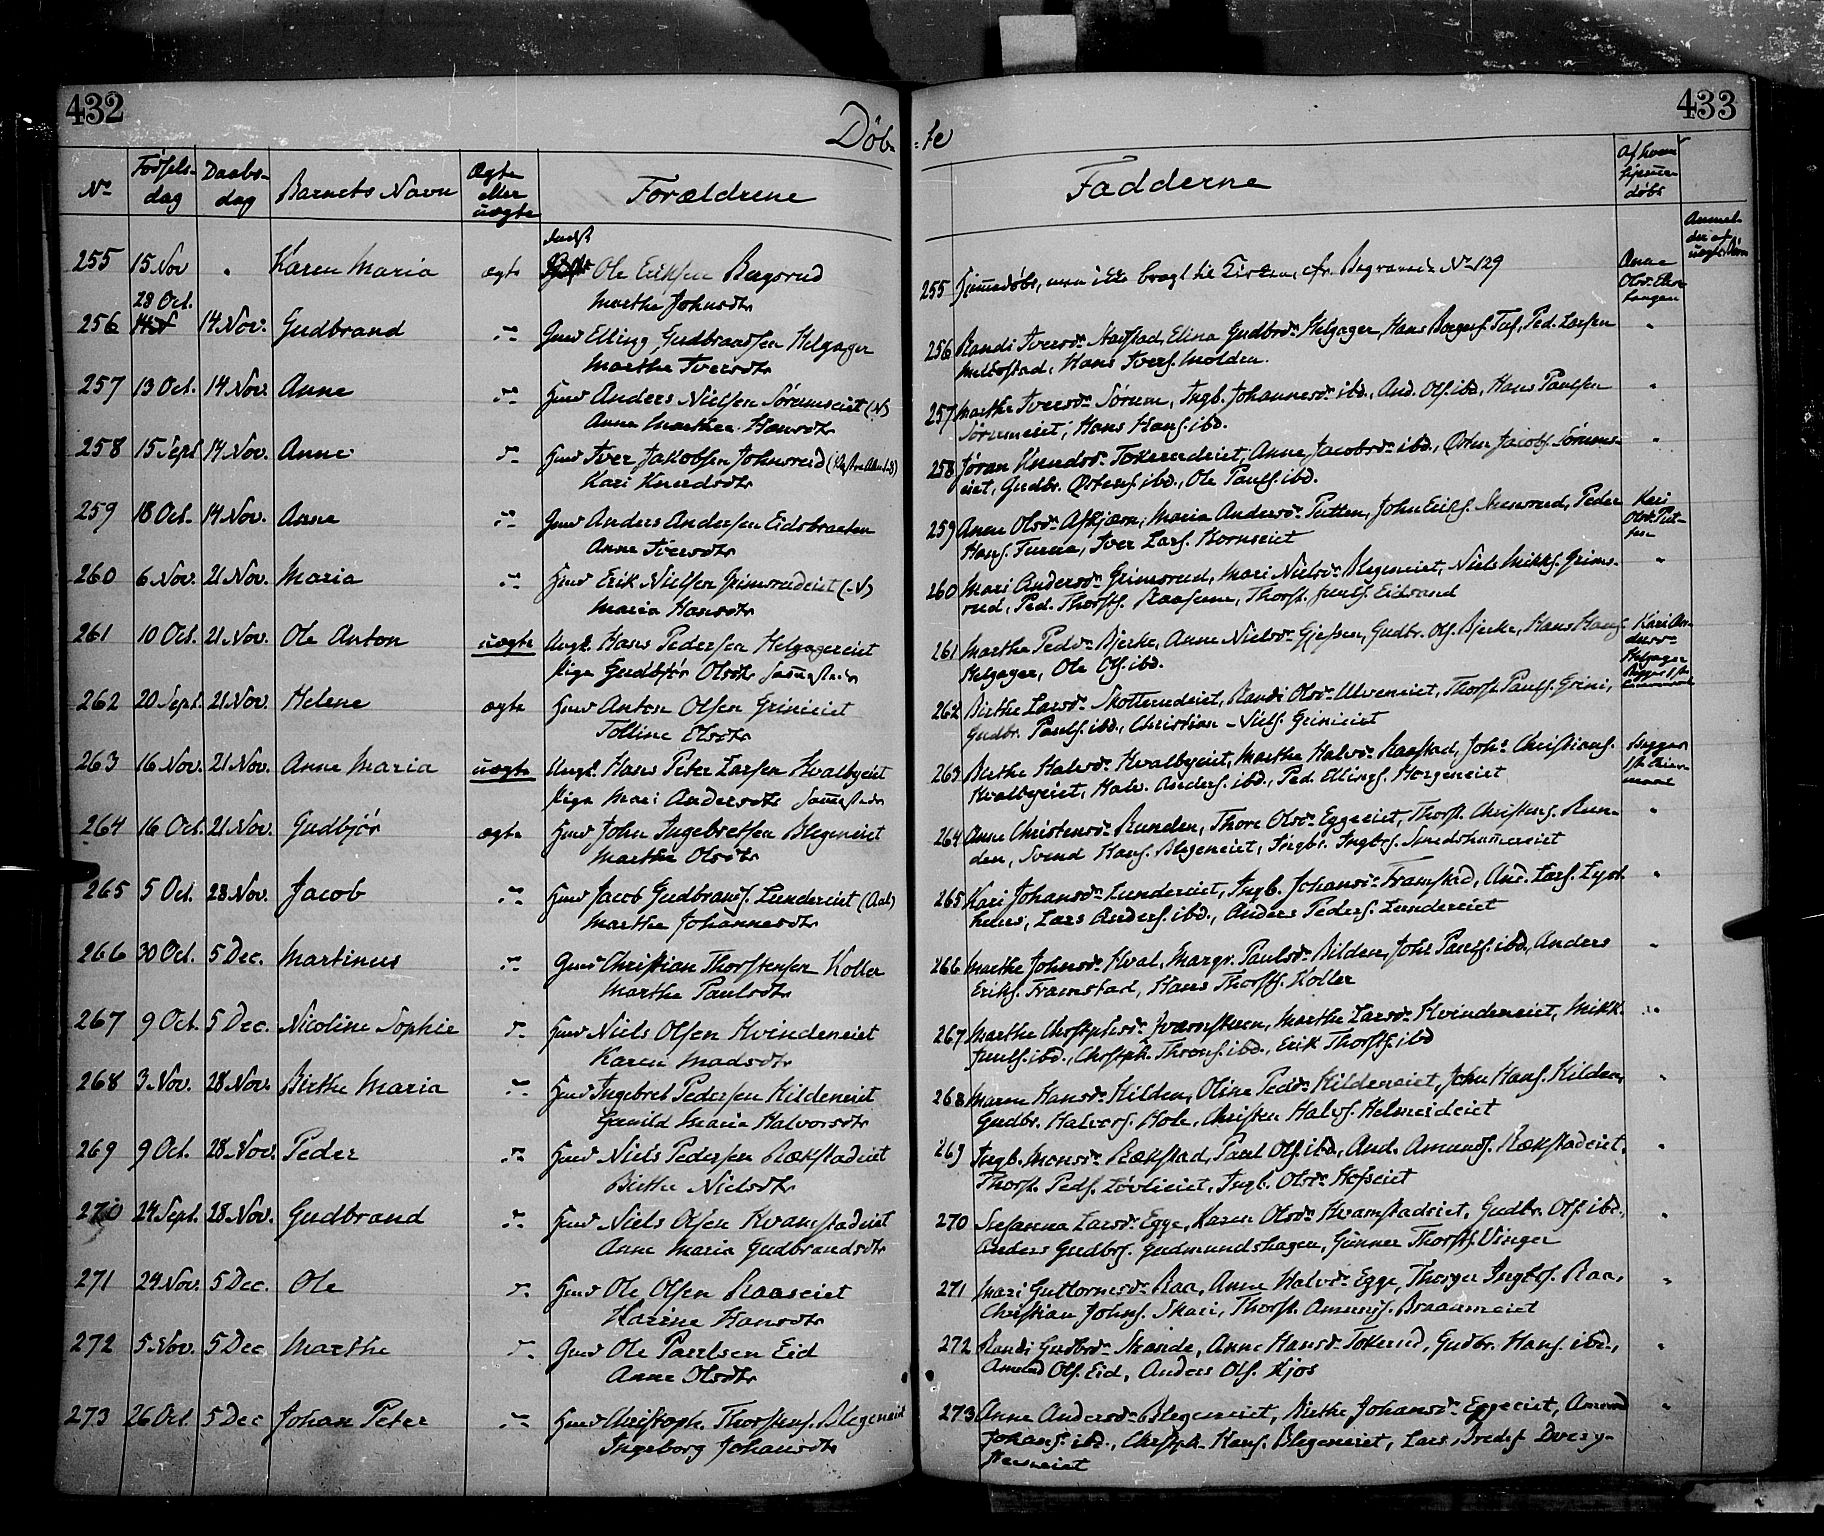 432
Døb-
No
Fødsels-
dag
Daabs-
dag
Barnets Navn
Ægte
eller
uægte
Forældrene
255 15 Nov " Karen Maria ægte Indst Ole Eriksen Bergsrud
Marthe Johnsdtr
28 Oct.
256 14 Nov. Gudbrand Gmd Elling Gudbrandsen Helgager
Marthe Iversdtr
257 13 Oct. 14 Nov. Anne Hmd Anders Nielsen Sørumseiet (N)
Anne Marthea Hansdtr
258 15 Sept 14 Nov. Anne Hmd Iver Jakobsen Johnsrud
Kari Knudsdtr
259 18 Oct. 14 Nov. Anne Gmd Anders Andersen Eidsbraaten
Anne Iversdtr
260 6 Nov. 21 Nov. Maria Hmd Erik Nielsen Grimsrudeiet (N)
Maria Hansdtr
261 10 Oct. 21 Nov. Ole Anton uægte Ungk. Hans Pedersen Helgagereiet
Pige Gudbjør Olsdtr Sammesteds
262 20 Sept. 21 Nov. Helene ægte Hmd Anton Olsen Grinieiet
Olsdtr
263 16 Nov. 21 Nov. Anne Maria uægte Ungk. Hans Peter Larsen Hvalbyeiet
Pige Mari Andersdtr Sammesteds
264 16 Oct. 21 Nov. Gudbjør ægte Hmd John Ingebretsen Blegeneiet
Marthe Olsdtr
265 5 Oct. 28 Nov. Jacob Hmd Jacob Gudbrands. Lundereiet (Aal)
Marthe Johannesdtr
266 30 Oct. 5 Dec. Martinus Gmd Christian Thorstensen Koller
Marthe Paulsdtr
267 9 Oct. 5 Dec. Nicoline Sophie Hmd Niels Olsen Kvindeneiet
Karen Madsdtr
268 3 Nov. 28 Nov. Birthe Maria Hmd Ingebret Pedersen Kildeneiet
Gunild Maria Halvorsdtr
269 9 Oct. 28 Nov. Peder Hmd Niels Pedersen Rækstadeiet
Birthe Nielsdtr
270 24 Sept. 28 Nov. Gudbrand Hmd Niels Olsen Kvamstadeiet
Anne Maria Gudbrandsdtr
271 24 Nov. 5 Dec. Ole Hmd Ole Olsen Raaseiet
Karine Hansdtr
272 5 Nov. 5 Dec Marthe Gmd Ole Paulsen Eid
Anne Olsdtr
273 26 Oct. 5 Dec Johan Peter Hmd Christoph. Thorstens. Blegeneiet
Ingeborg Johansdtr
433
:te
Fadderne
Af hvem
hjemme-
døbt
Anmel-
der af
uægte Børn
255 Hjemmedøbt, men ikke bragt til Kirken, cfr. Begravede No 129 Anne
Olsd.
256 Randi Iversdr Harstad, Elina Gudbrdr Helgager, Hans Ped. Larsen
Hans Ivers. Molden.
257 Marthe Iversdr Sørum, Ingb. Johannesdr ibd., And. Ols. ibd., Hans Paulsen
Sørumeiet, Hans Hans. ibd.
258 Jøran Knudsdr Tokerudeiet, Anne Jacobsdr ibd., Jacobs. Sørums-
eiet, Gudbr. Østens. ibd., Ole Pauls. ibd.
259 Anne Olsdr Askjærn, Maria Andersdr Putten, John Eriks. Peder Kari
Hans. Iver Lars. Korneiet
260 Mari Andersdr Grimsrud, Mari Nielsdr Blegeneiet, Niels Mikkels. Grims-
rud, Ped. Thorst. Thorst. Eidsand
261 Marthe Pedsdr Bjerke, Anne Nielsdr Gjefsen, Gudbr. Ols. Bjerke, Hans Hans. Kari An-
Helgager, Ole Ols. ibd. dersdr
Helgager
262 Birthe Larsdr Skotterudeiet, Randi Olsdr Ulveneiet, Thorst. Pauls. Grini,
Gudbr. Pauls. ibd., Christian Niels. Grinieiet
263 Birthe Halvsdr Hvalbyeiet, Marthe Halvsdr Raastad, Johs Christians.
Hvalbyeiet, Halv. Anders. ibd., Ped. Ellings. Horgeneiet
264 Anne Christensdr Runden, Thore Olsdr Eggeeiet, Thorst. Christens. Run-
den, Svend Hans. Blegeneiet, Ingbr. Ingbrs. Smedshammereiet
265 Kari Johansdr Lundereiet, Ingb. Johansdr Framstad, And. Lars.
Lars Anders. ibd., Anders Peders. Lundereiet
266 Marthe Johnsdr Hval, Margr. Paulsdr Bilden, Johs Pauls. ibd., Anders
Eriks. Framstad, Hans Thorsts. Koller
267 Marthe Chrstphsdr Marthe Larsdr Kvindeneiet, Mikk.
ibd., Chrstph. ibd., Erik Thorsts. ibd
268 Maren Hansdr Kilden, Oline Pedsdr Kildeneiet, John Hans. Kilden,
Gudbr. Halvors. Hole, Christen Halvs.
269 Ingb. Monsdr Rækstad, Paul Ols. ibd., And. Amunds. Rækstadeiet,
Thorst. Peds. Løvlieiet, Ingb. Olsdr Hofseiet
270 Susanna Larsdr Egge, Karen Olsdr Kvamstadeiet, Gudbr. Ols. ibd.,
Anders Gudbrs. Gudmundshagen, Gunner Thorsts. Vinger
271 Mari Guttormsdr Raa, Anne Halvsdr Egge, Thorger Ingbrs. Raa,
Christian Johns. Thorst. Amunds.
272 Randi Gudbrdr Anne Hansdr Tokerud, Gudbr. Hans. ibd.,
Amund Ols. Eid, Anders Ols. Kjos
273 Anne Andersdr Blegeneiet, Birthe Johansdr Eggeeiet, Amund
Johans. ibd., Chrstph. Hans. Blegeneiet, Lars